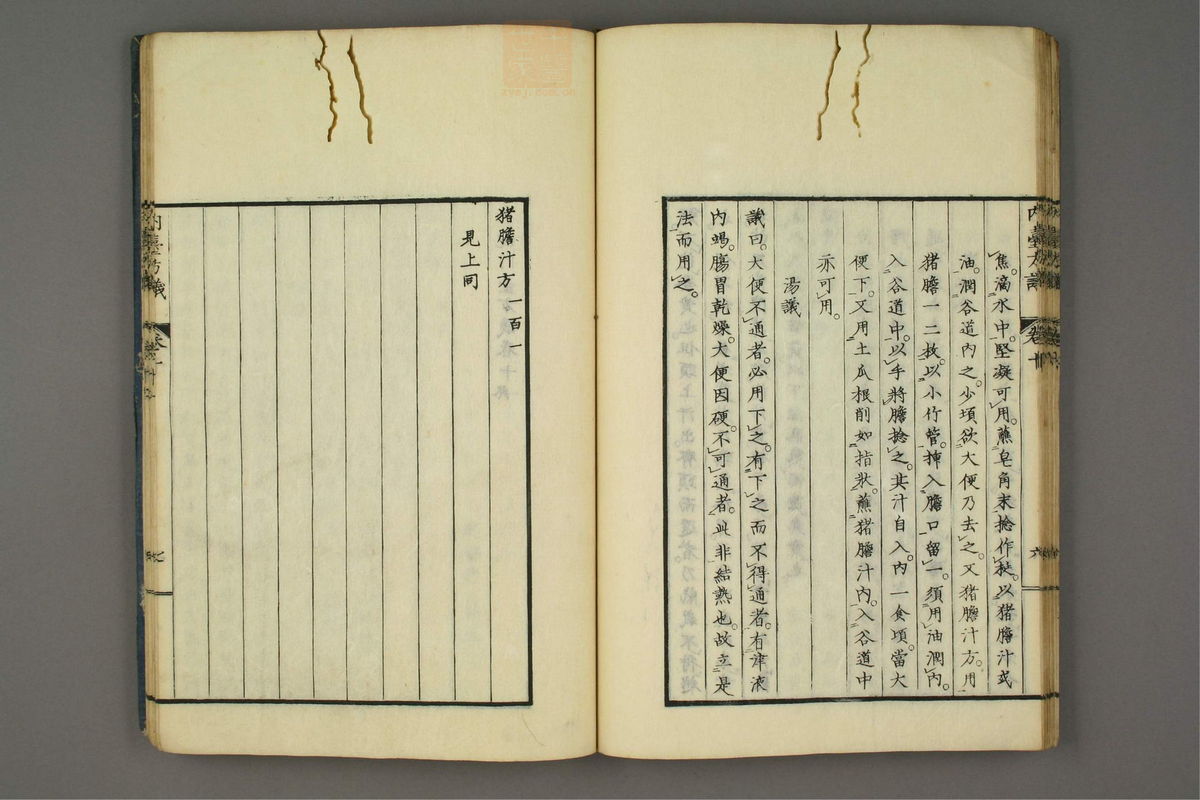 焦滴水中堅凝可用蘸皂角末捻作挺以猪膽汁或
油潤谷道內之少頃欲大便乃去之又猪膽汁方用
猪膽一二枚以小竹管挿入膽口留一須用油潤內
入谷道中以手將膽捻之其汁自入內一食頃當大
便下又用土瓜根削如指狀蘸猪膽汁內入谷道中
亦可用
湯議
議曰大便不通者必用下之有下之而不得通者有津液
內竭腸胃乾燥大便因硬不可通者此非結熱也故立是
法而用之
猪膽汁方一百一
見上同